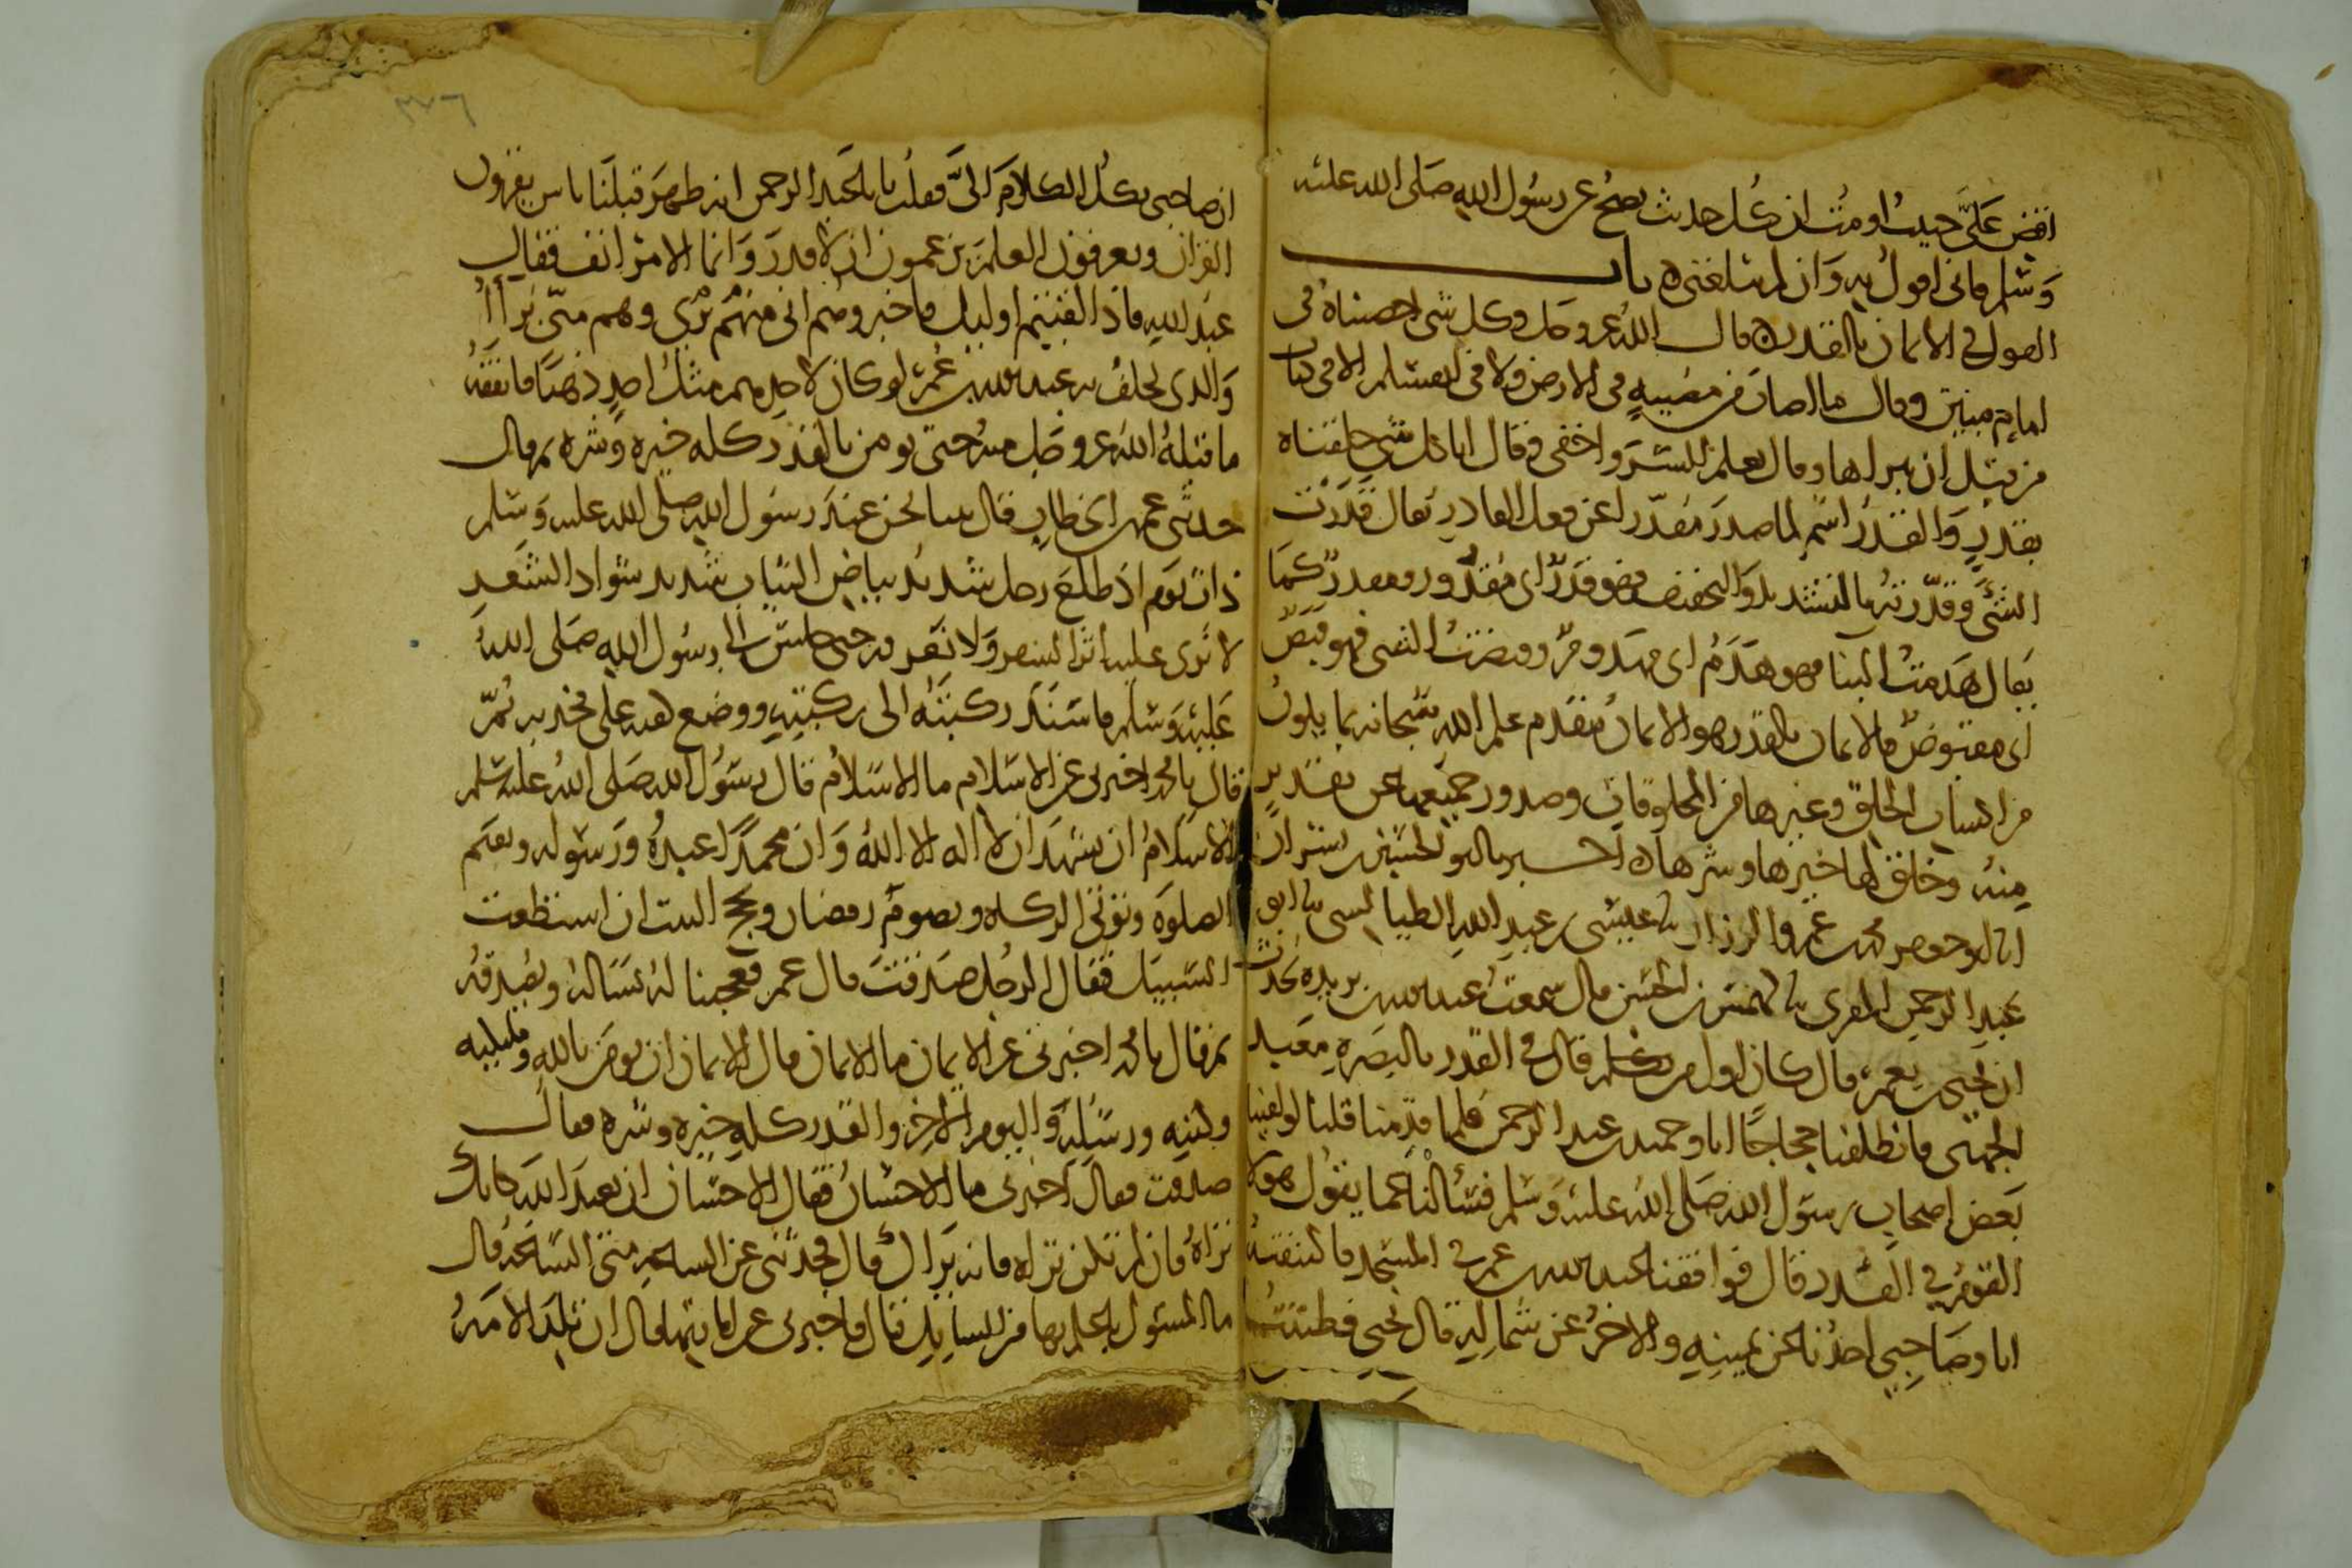 اقض على حييت او مت ان كل حديث يصح عن رسول الله صلى الله عليه
وسلم فاني اقول به وان لم يبلغني ه باب
القول في الايمان بالقدر ه قال الله عز وجل وكل شي احصيناه في
امام مبين وقال ما اصاب من مصيبة في الارض ولا في انفسكم الا في كتاب
من قبل ان نبراها وقال يعلم السر واخفى وقال انا كل شي خلقناه
بقدر والقدر اسم لما صدر مقدرا عن فعل القادر يقال قدرت
الشئ وقدرته بالتشديد والتخفيف فهو قدر اي مقدور ومقدر كما
يقال هدمت البنا فهو هدم اي مهدوم وقبضت الشي فهو قبض
اي مقبوض فالايمان بالقدر هو الايمان بتقدم علم الله سبحانه بما يكون
من اكساب الخلق وغيرها من المخلوقات وصدور جميعها عن تقدير
منه وخلق لها خيرها وشرها ه اخبرنا ابو الحسين بن بشران
انا ابو جعفر محمد بن عمرو الرزاز نا عيسى بن عبد الله الطيالسي نا ابو
عبد الرحمن المقرى نا كهمس بن الحسن قال سمعت عبد الله بن بريدة يحدث
ان يحيى بن يعمر قال كان اول من تكلم قال في القدر بالبصرة معبد
الجهني فانطلقنا حجاجا انا وحميد بن عبد الرحمن فلما قدمنا قلنا لو لقينا
بعض اصحاب رسول الله صلى الله عليه وسلم فسألناه عما يقول هولا
القوم في القدر قال فوافقنا عبد الله بن عمر في المسجد فاكتنفته
انا وصاحبي احدنا عن يمينه والاخر عن شماله قال يحيى فظننت
٣٧٦
ان صاحبي يكل الكلام الي فقلت يا با عبد الرحمن انه ظهر قبلنا ناس يقرون
القران ويعرفون العلم يزعمون ان لا قدر وانما الامر انف فقال
عبد الله فاذا لقيتم اوليك فاخبروهم اني منهم برى وهم مني برآا
والذي يحلف به عبد الله بن عمر لو كان لاحدهم مثل احد ذهبا فانفقه
ما قبله الله عز وجل منه حتى يومن بالقدر كله خيره وشره ثم قال
حدثني عمر بن الخطاب قال بينا نحن عند رسول الله صلى الله عليه وسلم
ذات يوم اذ طلع رجل شديد بياض الثياب شديد سواد الشعر
لا نرى عليه اثر السفر ولا نعرفه حتى جلس الى رسول الله صلى الله
عليه وسلم فاسند ركبته الى ركبتيه ووضع كفيه على فخذيه ثم
قال يا محمد اخبرني عن الاسلام ما الاسلام قال رسول الله صلى الله عليه وسلم
الاسلام ان تشهد ان لا اله الا الله وان محمدا عبده ورسوله وتقيم
الصلوة وتوتي الزكاة وتصوم رمضان وتحج البيت ان استطعت
السبيل فقال الرجل صدقت قال عمر فعجبنا له يساله ويصدقه
ثم قال يا محمد اخبرني عن الايمان ما الايمان قال الايمان ان تومن بالله وملايكته
وكتبه ورسله واليوم الاخر والقدر كله خيره وشره فقال
صدقت فقال اخبرني ما الاحسان فقال الاحسان ان تعبد الله كانك
تراه فان لم تكن تراه فانه يراك قال فحدثني عن الساعة متى الساعة قال
ما المسئول باعلم بها من السايل قال فاخبرني عن اماراتها قال ان تلد الامة